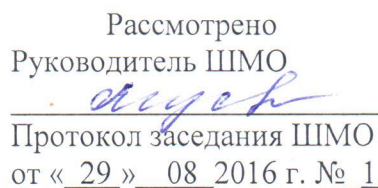 Рассмотрено
Руководитель ШМО
Протокол заседания ШМО
от « 29 » 08 2016 г. № 1